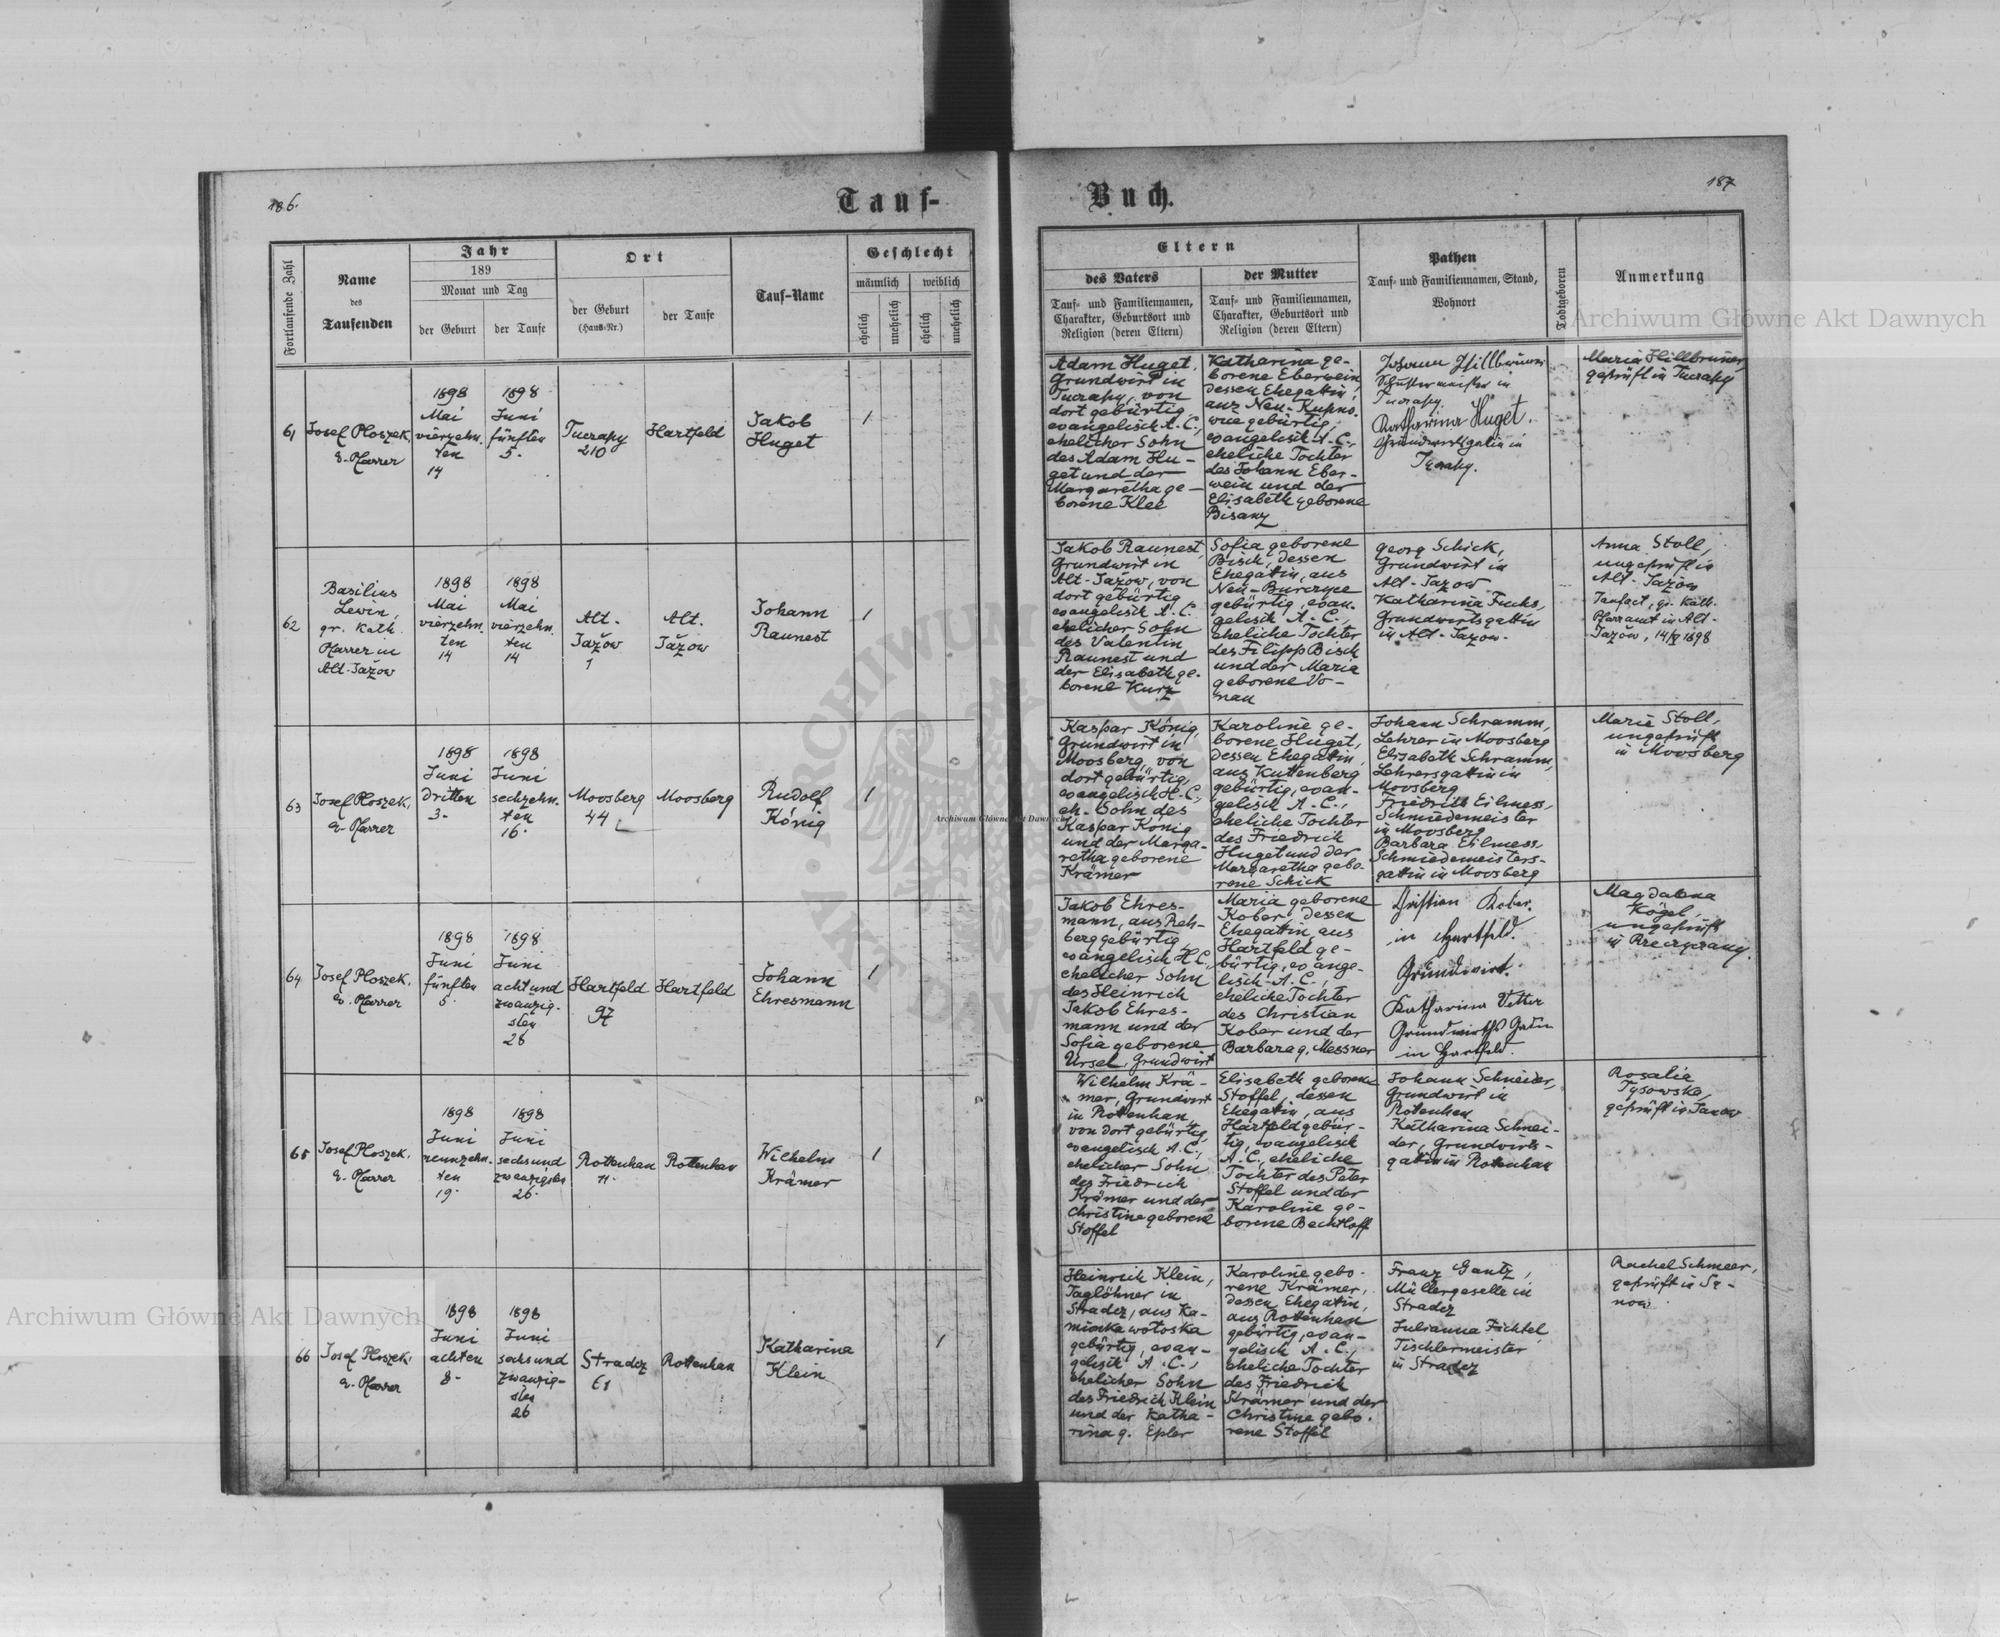 186.
Tauf-
Fortlaufende Zahl
Name
des
Taufenden
Jahr
189
Monat und Tag
der Geburt
der Taufe
Ort
der Geburt
(Haus-Nr.)
der Taufe
Tauf-Name
Geschlecht
männlich
weiblich
ehelich
unehelich
ehelich
unehelich
61
Josef Ploszek,
e. Pfarrer
1898
Mai
vierzehn.
ten
14
1898
Juni
fünften
5.
Tucrapy
210
Hartfeld
Jakob
Huget
1
62
Basilius
Levin,
gr. kath.
Pfarrer in
Alt-Jažow
1898
Mai
vierzehn.
ten
14
1898
Mai
vierzehn.
ten
14
Alt-
Jažow
1
Alt.
Jažow
Johann
Raunest
1
63
Josef Ploszek,
e. Pfarrer
1898
Juni
dritten
3.
1898
Juni
sechzehn.
ten
16.
Moosberg
44
Moosberg
Rudolf
König
1
64
Josef Ploszek,
e. Pfarrer
1898
Juni
fünften
5.
1898
Juni
acht und
zwanzig-
sten
28
Hartfeld
97
Hartfeld
Johann
Ehresmann
1
65
Josef Ploszek,
e. Pfarrer
1898
Juni
neunzehn.
ten
19.
1898
Juni
sechsund
zwanzigsten
26.
Rottenhan
11.
Rottenhan
Wilhelm
Krämer
1
66
Josef Ploszek,
e. Pfarrer
1898
Juni
achten
8.
1898
Juni
sechsund
zwanzig-
sten
26
Stradcz
61
Rottenhan
Katharina
Klein
1
Buch.
187
Eltern
des Vaters
Tauf- und Familiennamen,
Charakter, Geburtsort und
Religion (deren Eltern)
der Mutter
Tauf- und Familiennamen,
Charakter, Geburtsort und
Religion (deren Eltern)
Pathen
Tauf- und Familiennamen, Stand,
Wohnort
Todtgeboren
Anmerkung
Adam Huget,
Grundwirt in
Tucrapy, von
dort gebürtig,
evangelisch A.C.,
ehelicher Sohn
des Adam Hu-
get und der
Margaretha ge-
borene Klee
Katharina ge-
borene Eberwein,
dessen Ehegattin,
aus Neu-Kupno.
wice gebürtig,
evangelisch A.C.,
eheliche Tochter
des Johann Eber-
wein und der
Elisabeth geborene
Bisanz
Johann Hillbrunner
Schustermeister in
Tucrapy
Katharina Huget.
Grundwirtsgattin in
Tucrapy.
Maria Hillbrunner,
geprüft in Tucrapy
Jakob Raunest,
Grundwirt in
Alt-Jažow, von
dort gebürtig
evangelisch A.C.
ehelicher Sohn
des Valentin
Raunest und
der Elisabeth ge-
borene Kurz
Sofia geborene
Bisch, dessen
Ehegattin, aus
Neu-Burczyce
gebürtig, evan-
gelisch A.C.,
eheliche Tochter
des Filipp Bisch
und der Maria
geborene Vo-
nau
Georg Schick,
Grundwirt in
Alt-Jazow
Katharina Fuchs,
Grundwirtsgattin
in Alt-Jazow.
Anna Stoll,
ungeprüft in
Alt-Jažow
Taufact, gr. kath.
Pfarramt in Alt-
Jažow, 14/V 1898
Kaspar König,
Grundwirt in
Moosberg, von
dort gebürtig,
evangelisch H.C.,
eh. Sohn des
Kaspar König
und der Marga-
retha geborene
Krämer
Karoline ge-
borene Huget,
dessen Ehegattin,
aus Kuttenberg
gebürtig, evan-
gelisch A.C.,
eheliche Tochter
des Friedrich
Huget und der
Margaretha gebo-
rene Schick
Johann Schramm,
Lehrer in Moosberg
Elisabeth Schramm,
Lehrersgattin in
Moosberg
Friedrich Eilmess,
Schmiedemeister
in Moosberg
Barbara Eilmess,
Schmiedemeisters-
gattin in Moosberg
Marie Stoll,
ungeprüft
in Moosberg
Jakob Ehres-
mann, aus Reh-
berg gebürtig,
evangelisch H.C.,
ehelicher Sohn
des Heinrich
Jakob Ehres-
mann und der
Sofia geborene
Ursel, Grundwirt
Maria geborene
Kober, dessen
Ehegattin, aus
Hartfeld ge-
bürtig, evange-
lisch A.C.,
eheliche Tochter
des Christian
Kober und der
Barbara g. Messner
Christian Kober.
in Hartfeld.
Grundwirt.
Katharina Vetter
Grundwirths Gatin
in Hartfeld.
Magdalena
Kögel,
ungeprüft
in Przeczyczany.
Wilhelm Krä-
mer, Grundwirt
in Rottenhan,
von dort gebürtig,
evangelisch A.C.,
ehelicher Sohn
des Friedrich
Krämer und der
Christine geborene
Stoffel
Elisabeth geborene
Stoffel, dessen
Ehegattin, aus
Hartfeld gebür-
tig, evangelisch
A.C., eheliche
Tochter des Peter
Stoffel und der
Karoline ge-
borene Bechtloff
Johann Schneider,
Grundwirt in
Rottenhan
Katharina Schnei-
der, Grundwirts-
gattin in Rottenhan
Rosalia
Tysowska,
geprüft in Janow
Heinrich Klein,
Taglöhner in
Stradcz, aus Ka-
mionka wołoska
gebürtig, evan-
gelisch A.C.,
ehelicher Sohn
des Friedrich Klein
und der Katha-
rina g. Epler
Karoline gebo-
rene Krämer,
dessen Ehegattin,
aus Rottenhan
gebürtig, evan-
gelisch A.C.,
eheliche Tochter
des Friedrich
Krämer und der
Christine gebo.
rene Stoffel
Franz Gantz,
Müllergeselle in
Stradcz
Julianna Fichtel,
Tischlermeister
in Stradcz
Rachel Schmeer,
geprüft in Ja-
now.
Archiwum Główne Akt Dawnych
Archiwum Główne Akt Dawnych
Archiwum Główne Akt Dawnych